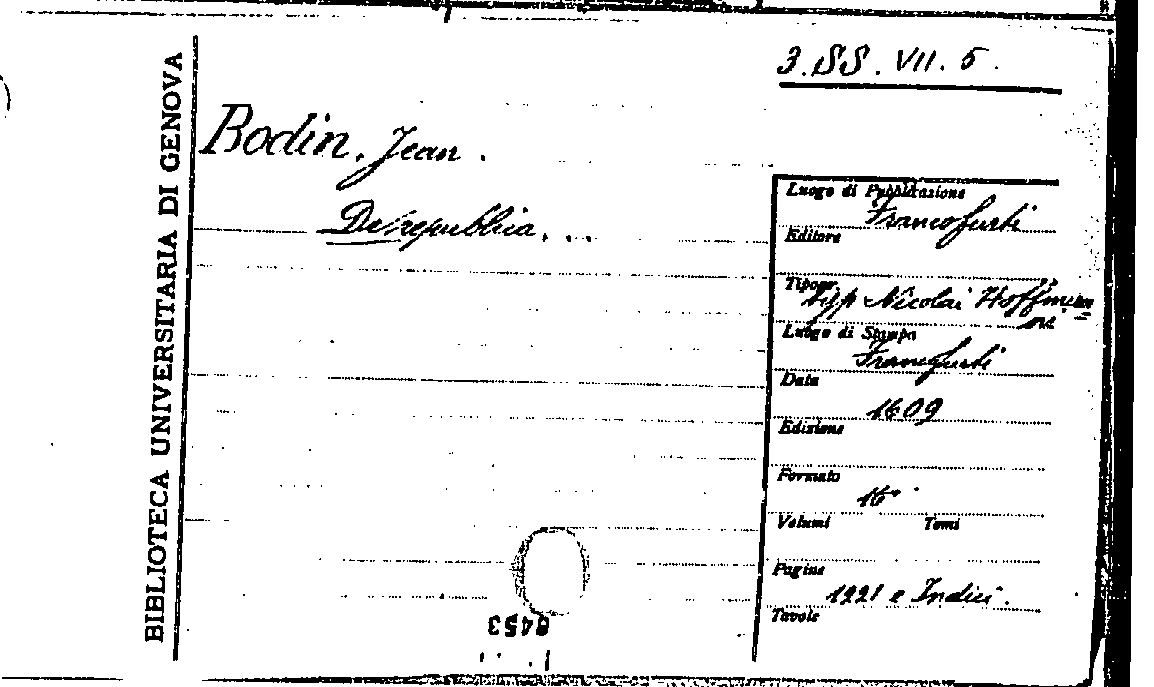 3.SS.VII.5.
BIBLIOTECA UNIVERSITARIA DI GENOVA
Bodin, Jean.
De republica...
Luogo di Pubblicazione
Francofurti
Editore
Tipogr.
typ Nicolai Hoffman
ni
Luogo di Stampa
Francofurti
Data
1609
Edizione
Formato
16°
Volumi Tomi
Pagine
1221 e Indici.
Tavole
8453